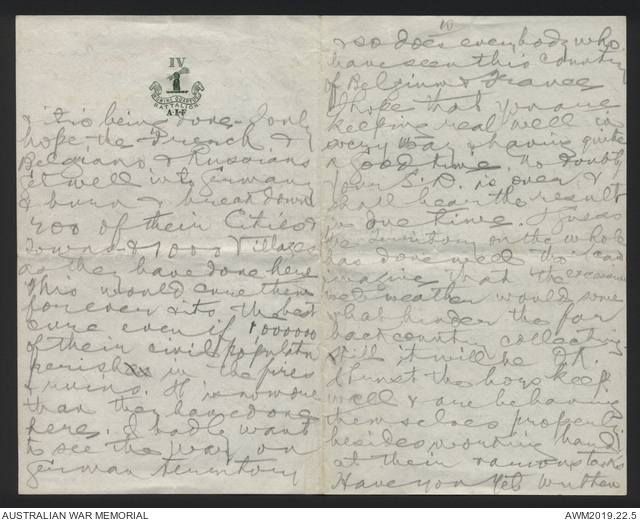 IV
BATTALION
A·I·F
& it is being done. I only
hope the French &
Belgians & Russians
get well into Germany
& burn & break down
700 of their Cities &
Towns & 1000 Villages
as they have done here
This would cure them
for ever & its the best
cure even if 1000000
of their civil population
perish in the fires
& ruins. It is no more
than they have done
here. I badly want
to see the war on
German Territory
10
& so does everybody who
have seen this Country
of Belgium & France
I hope that you are
keeping real well in
every way & having quite
a good time no doubt
your S.D. is over &
shall hear the result
in due time. I guess
the Territory on the whole
has done well tho I can
imagine that the excessive
wet weather would some
what hinder the far
back country collecting.
Still it will be O.K.
I trust the boys keep
well & are behaving
themselves properly
besides working hard
at their various tasks
Have you yet written
AUSTRALIAN WAR MEMORIAL
AWM2019.22.5